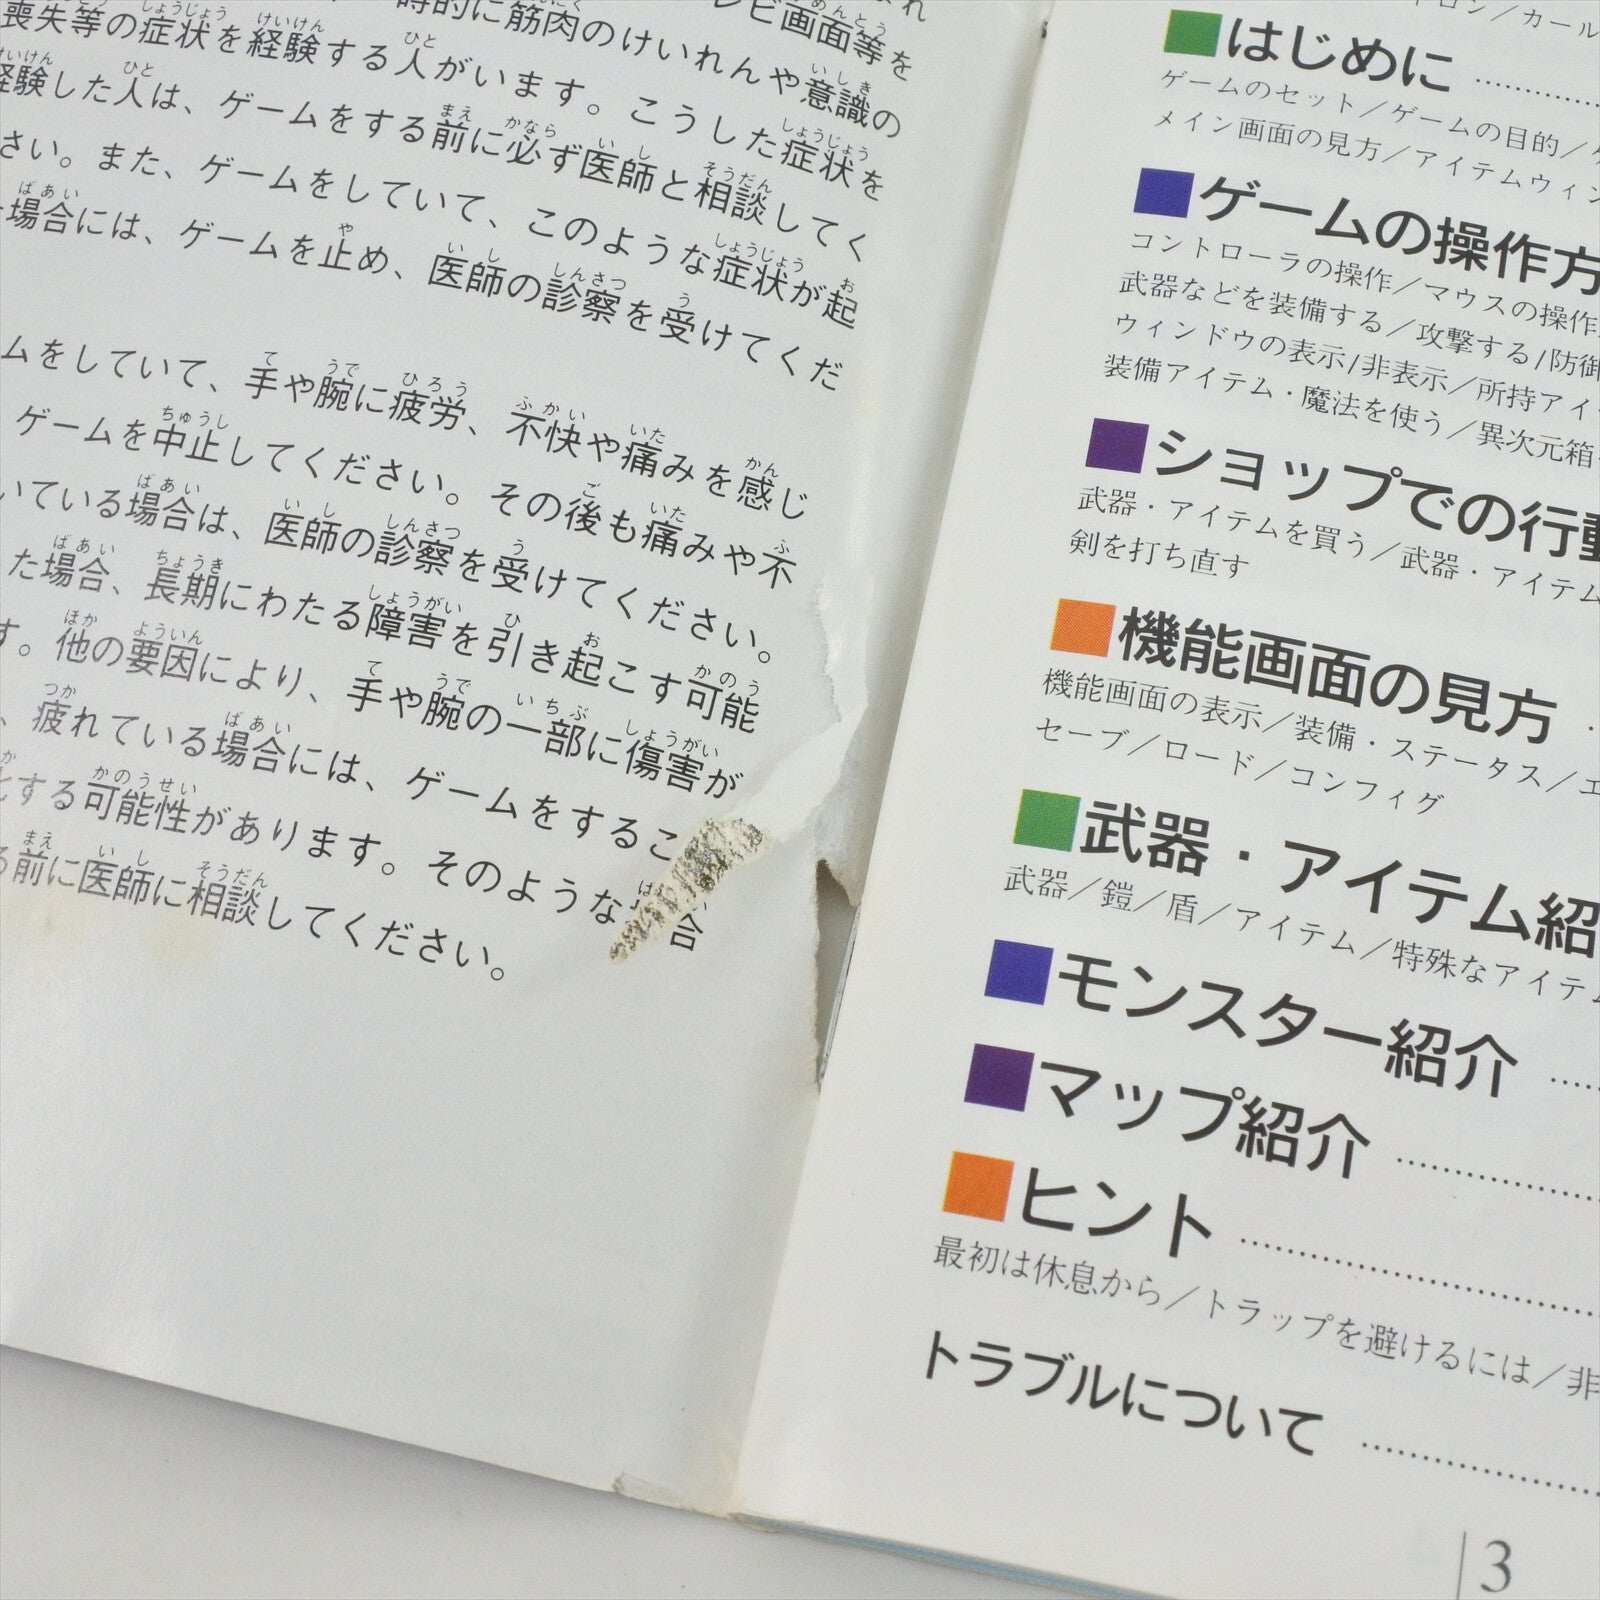 ビ画面等を
時的に筋肉のけいれんや意識の
喪失等の症状を経験する人がいます。こうした症状を
経験した人は、ゲームをする前に必ず医師と相談してく
さい。また、ゲームをしていて、このような症状が起
場合には、ゲームを止め、医師の診察を受けてくだ
ムをしていて、手や腕に疲労、不快や痛みを感じ
ゲームを中止してください。その後も痛みや不
いている場合は、医師の診察を受けてください。
た場合、長期にわたる障害を引き起こす可能
す。他の要因により、手や腕の一部に傷害が
、疲れている場合には、ゲームをするこ
する可能性があります。そのような 合
前に医師に相談してください。
ロン／カール
はじめに
ゲームのセット／ゲームの目的／
メイン画面の見方／アイテムウィン
ゲームの操作方
コントローラの操作／マウスの操作
武器などを装備する／攻撃する/防御
ウィンドウの表示/非表示／所持アイ
装備アイテム・魔法を使う／異次元箱
ショップでの行動
武器・アイテムを買う／武器・アイテム
剣を打ち直す
機能画面の見方
機能画面の表示／装備・ステータス／エ
セーブ／ロード／コンフィグ
武器・アイテム紹
武器／鎧／盾／アイテム／特殊なアイテム
モンスター紹介
マップ紹介
ヒント
最初は休息から／トラップを避けるには／非
トラブルについて
3